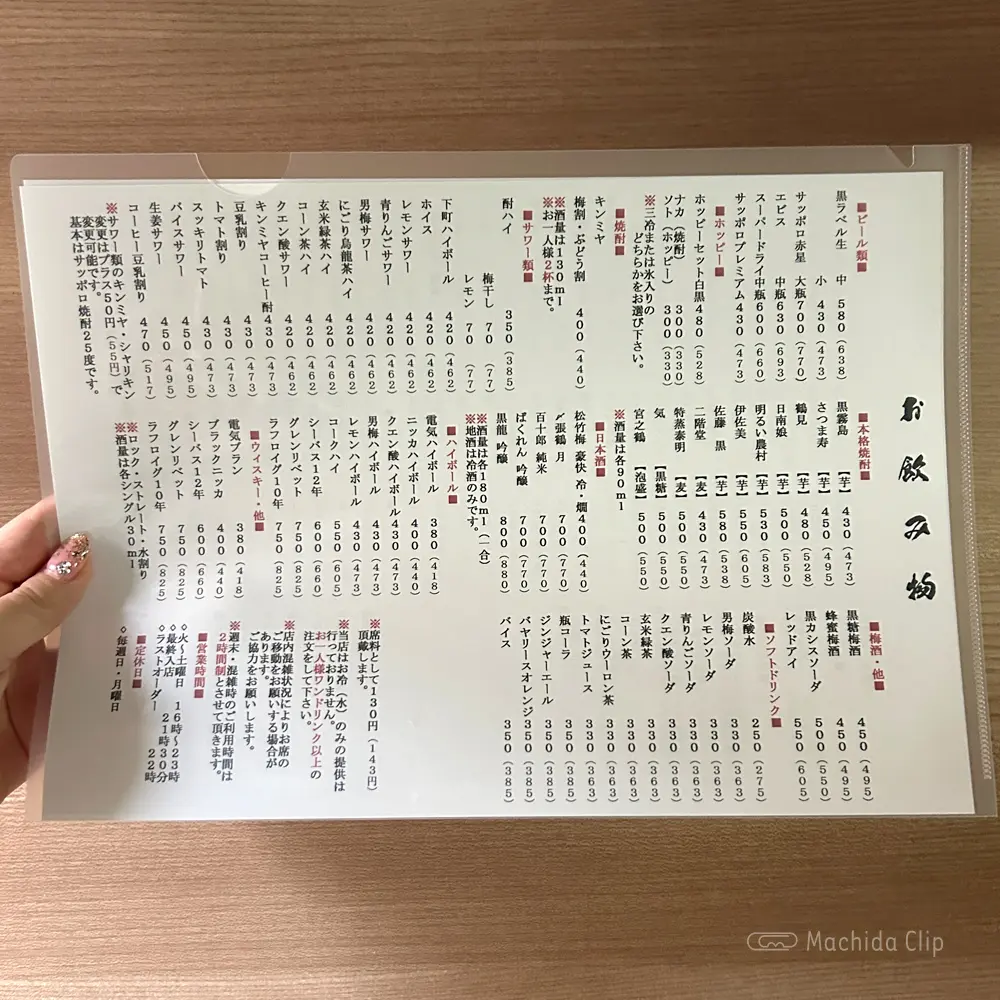 お飲み物
■ビール類■
黒ラベル生 中 580(638)
小 430(473)
サッポロ赤星 大瓶700(770)
エビス 中瓶630(693)
スーパードライ中瓶600(660)
サッポロプレミアム430(473)
■ホッピー■
ホッピーセット白黒480(528)
ナカ(焼酎) 300(330)
ソト(ホッピー) 300(330)
※三冷または氷入りの
どちらかをお選び下さい。
■焼酎■
キンミヤ
梅割・ぶどう割 400(440)
※酒量は130ml
※お一人様2杯まで。
■サワー類■
酎ハイ 350(385)
梅干し 70(77)
レモン 70(77)
下町ハイボール 420(462)
ホイス 420(462)
レモンサワー 420(462)
青りんごサワー 420(462)
男梅サワー 420(462)
にごり烏龍茶ハイ 420(462)
玄米緑茶ハイ 420(462)
コーン茶ハイ 420(462)
クエン酸サワー 420(462)
キンミヤコーヒー酎430(473)
豆乳割り 430(473)
トマト割り 430(473)
スッキリトマト 430(473)
バイスサワー 450(495)
生姜サワー 450(495)
コーヒー豆乳割り 470(517)
※サワー類のキンミヤ・シャリキン
変更はプラス50円(55円)で
変更可能です。
基本はサッポロ焼酎25度です。
■本格焼酎■
黒霧島 【芋】 430(473)
さつま寿 【芋】 450(495)
鶴見 【芋】 480(528)
日南娘 【芋】 500(550)
明るい農村 【芋】 530(583)
伊佐美 【芋】 550(605)
佐藤 黒 【芋】 580(538)
二階堂 【麦】 430(473)
特蒸泰明 【麦】 500(550)
気 【黒糖】 500(550)
宮之鶴 【泡盛】 500(550)
※酒量は各90ml
■日本酒■
松竹梅 豪快 冷・燗400(440)
〆張鶴 月 700(770)
百十郎 純米 700(770)
ばくれん 吟醸 700(770)
黒龍 吟醸 800(880)
※酒量は各180ml(一合)
※地酒は冷酒のみです。
■ハイボール■
電気ハイボール 380(418)
ニッカハイボール 400(440)
クエン酸ハイボール430(473)
男梅ハイボール 430(473)
レモンハイボール 430(473)
コークハイ 550(605)
シーバス12年 600(660)
グレンリベット 750(825)
ラフロイグ10年 750(825)
■ウィスキー・他■
電気ブラン 380(418)
ブラックニッカ 400(440)
シーバス12年 600(660)
グレンリベット 750(825)
ラフロイグ10年 750(825)
※ロック・ストレート・水割り
※酒量は各シングル30ml
■梅酒・他■
黒糖梅酒 450(495)
蜂蜜梅酒 450(495)
黒カシスソーダ 500(550)
レッドアイ 550(605)
■ソフトドリンク■
炭酸水 250(275)
男梅ソーダ 330(363)
レモンソーダ 330(363)
青りんごソーダ 330(363)
クエン酸ソーダ 330(363)
玄米緑茶 330(363)
コーン茶 330(363)
にごりウーロン茶 330(363)
トマトジュース 350(385)
瓶コーラ 350(385)
ジンジャーエール 350(385)
バヤリースオレンジ350(385)
バイス 350(385)
※席料として130円(143円)
頂戴します。
※当店はお冷(水)のみの提供は
行っておりません。
お一人様ワンドリンク以上の
注文をして下さい。
※店内混雑状況によりお席の
ご移動をお願いする場合が
あります。
ご協力をお願いします。
※週末・混雑時のご利用時間は
2時間制とさせて頂きます。
■営業時間■
◇火〜土曜日 16時〜23時
◇最終入店 21時30分
◇ラストオーダー 22時
■定休日■
◇毎週日・月曜日
Machida Clip